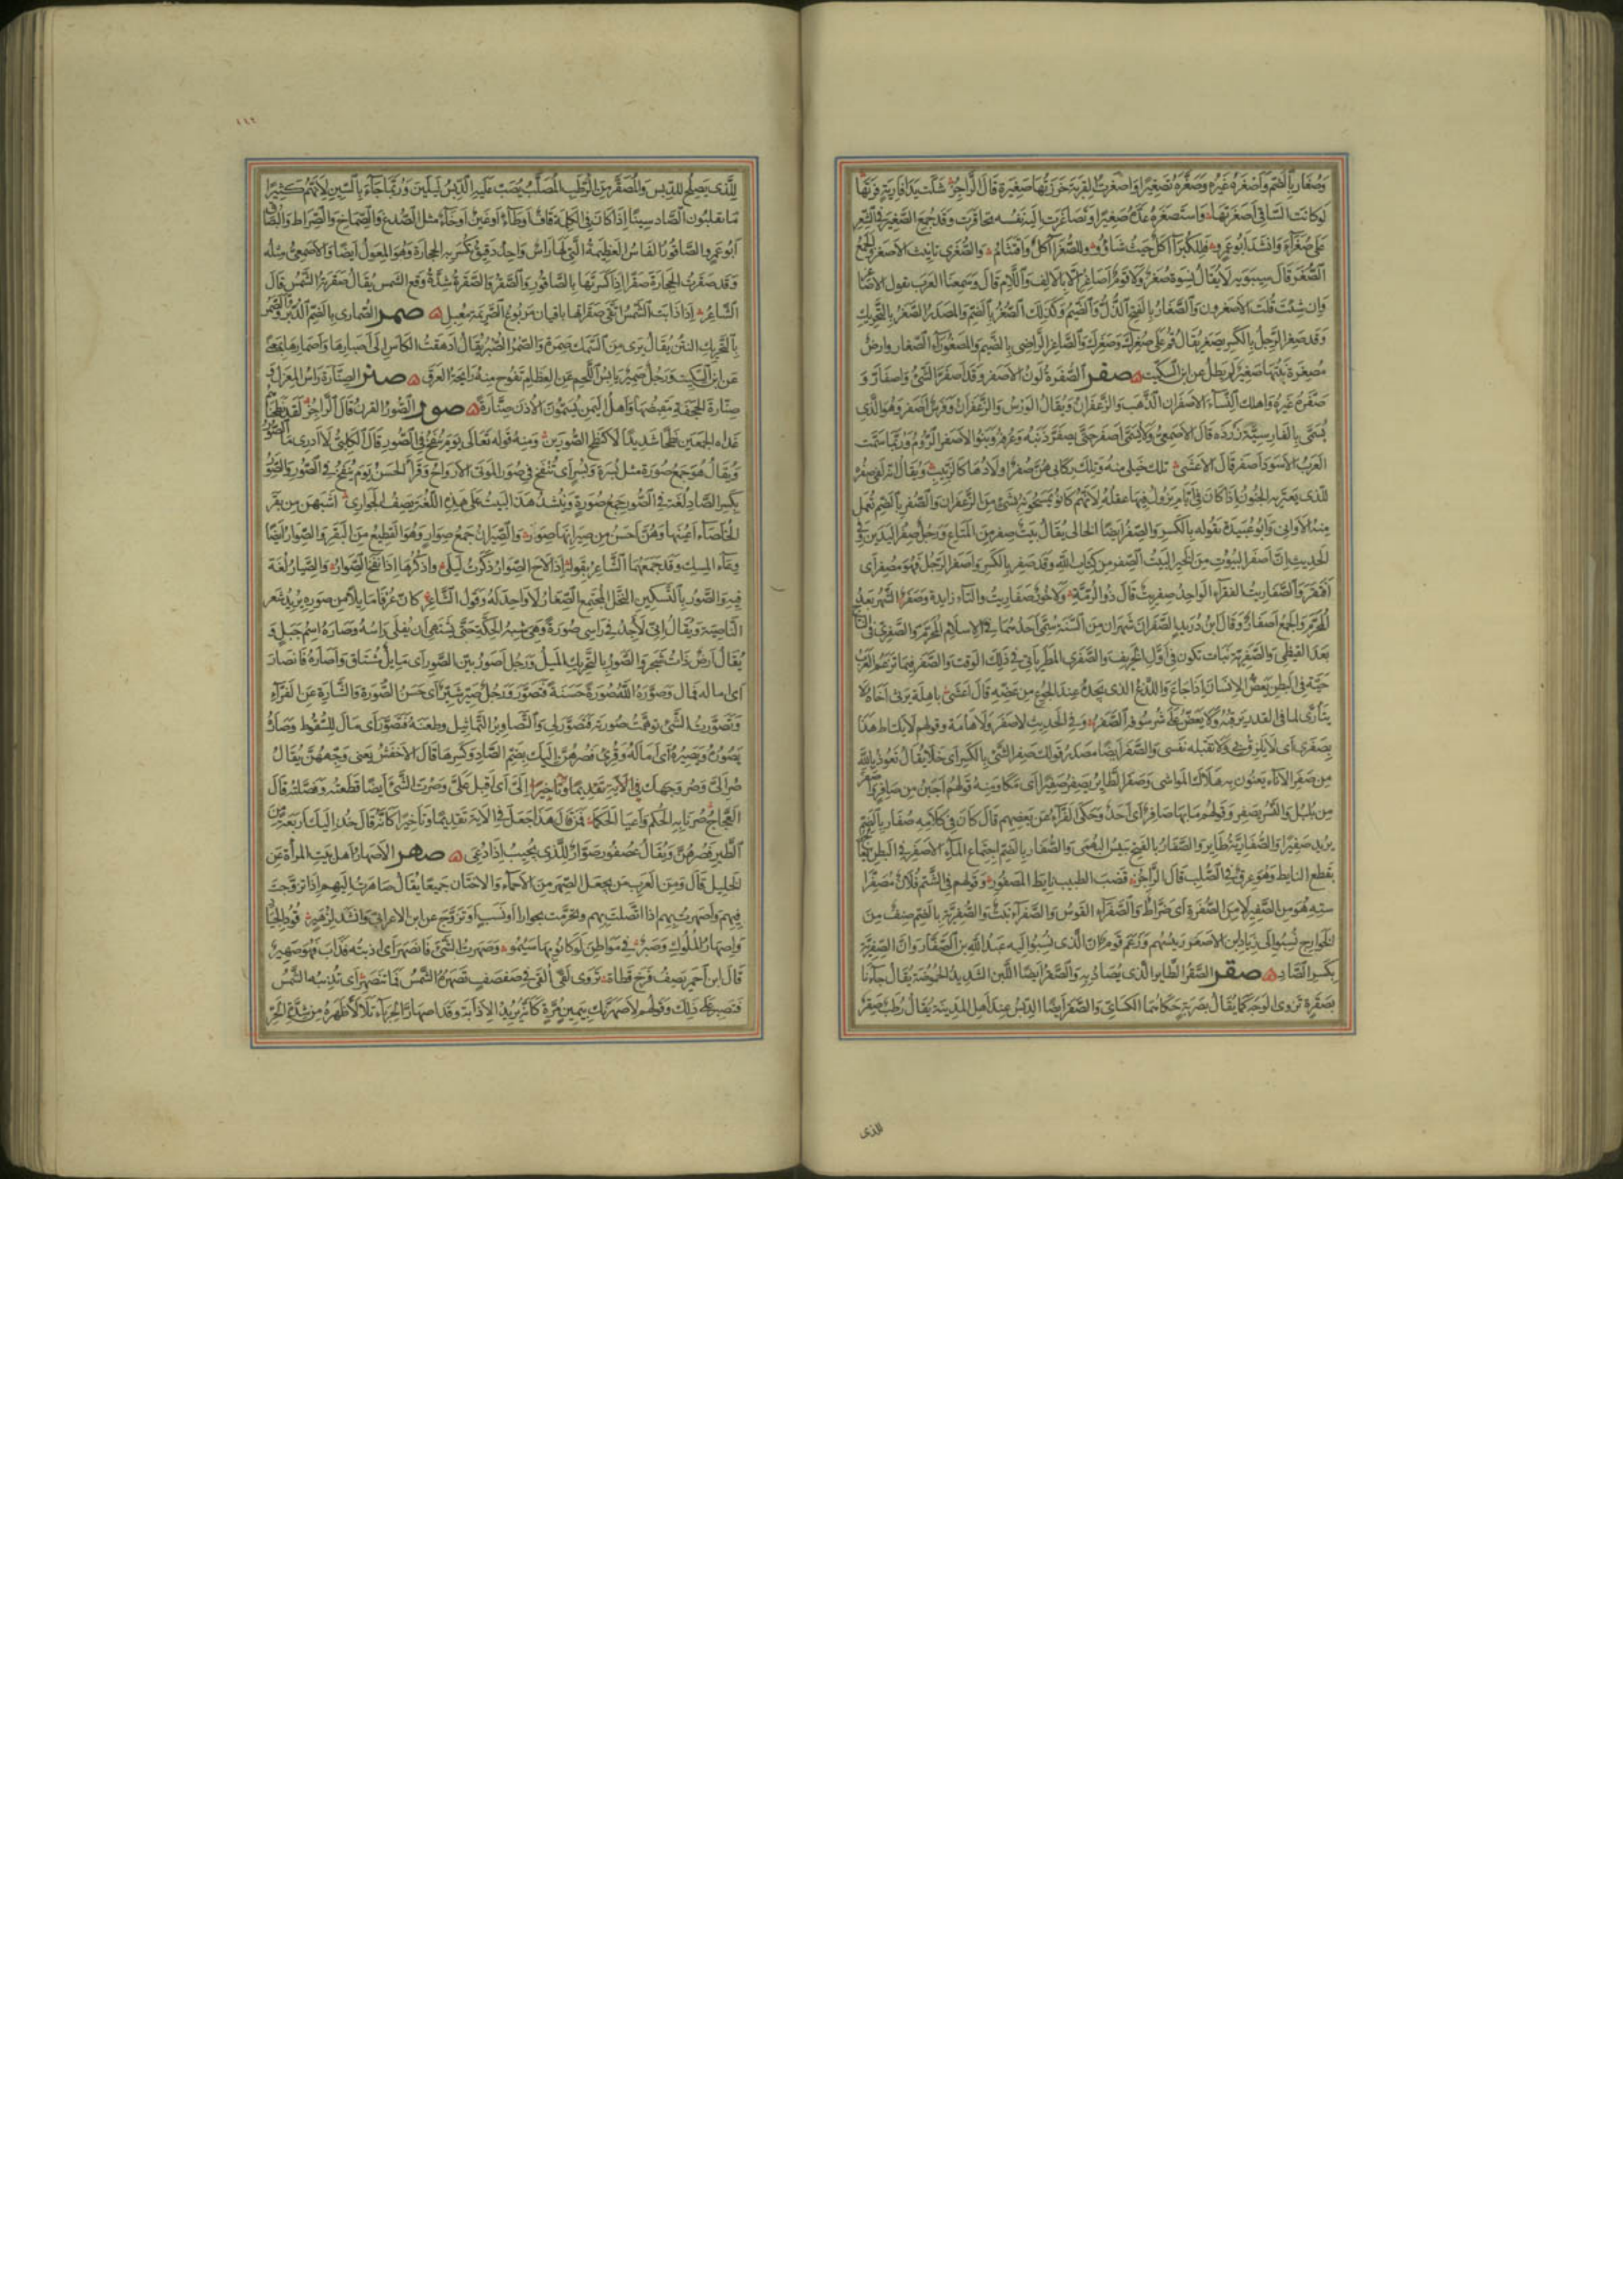 وصغار بالضم واصغره غيره وصغره تصغيرا واصغرت القربة خرزتها صغيرة قال الراجز شلت يدا فارية فرتها
لو كانت الساقي اصغرتها واستصغره عده صغيرا وتصاغرت اليه نفسه تحاقرت وقد جمع الصغير في الشعر
على صغراء وانشد ابو عمرو فللكبراء اكل حيث شاؤا وللصغراء اكل واقتثام والصغرى تانيث الاصغر والجمع
الصغر قال سيبويه لا يقال نسوة صغر ولا قوم اصاغر الا بالالف واللام قال وسمعنا العرب تقول الاصاغر
وان شئت قلت الاصغرون والصغار بالفتح الذل والضيم وكذلك الصغر بالضم والمصدر الصغر بالتحريك
وقد صغر الرجل بالكسر يصغر يقال قم على صغرك وصغرك والصاغر الراضي بالضيم والمصغوراء الصغار وارض
مصغرة نبتها صغير لم يطل عن ابن السكيت صفر الصفرة لون الاصفر وقد اصفر الشئ واصفار و
صفره غيره واهلك النساء الاصفران الذهب والزعفران ويقال الورس والزعفران وفرس اصفر وهو الذي
يسمى بالفارسية زرده قال الاصمعي ولا يسمى اصفر حتى يصفر ذنبه وعرفه وبنو الاصفر الروم وربما سمت
العرب الاسود اصفر قال الاعشى تلك خيلي منه وتلك ركابي هن صفر اولادها كالزبيب ويقال انه لفي صفرة
للذي يعتريه الجنون اذا كان في ايام يزول فيها عقله لانهم كانوا يمسحونه بشئ من الزعفران والصفر بالضم تعمل
منه الاواني وابو عبيدة يقوله بالكسر والصفر ايضا الخالي يقال بيت صفر من المتاع ورجل صفر اليدين وفي
الحديث ان اصفر البيوت من الخير البيت الصفر من كتاب الله وقد صفر بالكسر واصفر الرجل فهو مصفر اي
افتقر والصفاريت الفقراء الواحد صفريت قال ذو الرمة ولا خور صفاريت والتاء زايدة وصفر الشهر بعد
المحرم والجمع اصفار وقال ابن دريد الصفران شهران من السنة سمي احدهما في الاسلام المحرم والصفري في
بعد القيظي والصفرية نبات تكون في اول الخريف والصفري المطر ياتي في ذلك الوقت والصفر فيما تزعم العرب
حية في البطن تعض الانسان اذا جاع واللذع الذي يجده عند الجوع من عضه قال اعشى باهلة يرثي اخاه لا
يتارى لما في القدر يرقبه ولا يعض على شرسوفه الصفر وفي الحديث لا صفر ولا هامة وقولهم لا يلتاط هذا
بصفري اي لا يلزق بي ولا تقبله نفسي والصفر ايضا مصدر قولك صفر الشئ بالكسر اي خلا يقال نعوذ بالله
من صفر الاناء يعنون به هلاك المواشي وصفر الطاير يصفر صفيرا اي مكا ومنه قولهم اجبن من صافر
من بلبل والنسر يصفر وقولهم ما بها صافر اي احد وحكى الفراء عن بعضهم قال كان في كلامه صفار بالضم
يريد صفيرا والصفارية طاير والصفار بالفتح يبيس البهمى والصفار بالضم اجتماع الماء الاصفر في البطن
بقطع النايط وهو عرق في الصلب قال الراجز قضب الطبيب نايط المصفور وقولهم في الشتم فلان مصفر
استه هو من الصفير لا من الصفرة اي ضراط والصفراء القوس والصفراء نبت والصفرية بالضم صنف من
الخوارج نسبوا الى زياد بن الاصفر رييسهم وزعم قوم ان الذي نسبوا اليه عبد الله بن الصفار وان الصفرية
بكسر الصاد صقر الصقر الطاير الذي يصاد به والصقر ايضا اللبن الشديد الحموضة يقال جاءنا
بصقرة تزوي الوجه كما يقال بصربة حكاهما الكسائي والصقر ايضا الدبس عند اهل المدينة يقال رطب صقر
للذي
١١٦
للذي يصلح للدبس والمصقر من الرطب المصلب يصب عليه الدبس ليلين وربما جاء بالسين لانهم كثيرا
ما يقلبون الصاد سينا اذا كان في الكلمة قاف او طاء او غين او خاء مثل الصدغ والصماخ والصراط والبصاق
ابو عمرو الصاقور الفاس العظيمة التي لها راس واحد دقيق تكسر به الحجارة وهو المعول ايضا والاصمعي مثله
وقد صقرت الحجارة صقرا اذا كسرتها بالصاقور والصقر والصقرة شدة وقع الشمس يقال صقرته الشمس قال
الشاعر اذا ذابت الشمس اتقى صقراتها بافنان مربوع الصريمة معبل صمر الصمارى بالضم الدبر والصمر
بالتحريك النتن يقال يدي من السمك صمرة والصمر الصبر يقال ادهقت الكاس الى اصبارها واصمارها بمعنى
عن ابن السكيت ورجل صمير يابس اللحم على العظام تفوح منه رايحة العرق صنر الصنارة راس المغزل و
صنارة الحجفة مقبضها واهل اليمن يسمون الاذن صنارة صور الصور القرن قال الراجز لقد نطحناهم
غداة الجمعين نطحا شديدا لا كنطح الصورين ومنه قوله تعالى يوم ينفخ في الصور قال الكلبي لا ادري ما الصور
ويقال هو جمع صورة مثل بسرة وبسر اي تنفخ في صور الموتى الارواح وقرا الحسن يوم ينفخ في الصور والصور
بكسر الصاد لغة في الصور جمع صورة وينشد هذا البيت على هذه اللغة يصف الجواري اشبهن من بقر
الخلصاء اعينها وهن احسن من صيرانها صورا والصيران جمع صوار وهو القطيع من البقر والصوار ايضا
وعاء المسك وقد جمعهما الشاعر بقوله اذا لاح الصوار ذكرت ليلى واذكرها اذا نفح الصوار والصيار لغة
فيه والصور بالتسكين النخل المجتمع الصغار لا واحد له وقول الشاعر كان عرفا مايلا من صوره يريد شعر
الناصية ويقال اني لاجد في راسي صورة وهي شبه الحكة حتى يشتهي ان يفلى راسه وصارة اسم جبل و
يقال ارض ذات شجر والصور بالتحريك الميل ورجل اصور بين الصور اي مايل مشتاق واصاره فانصار
اي اماله فمال وصوره الله صورة حسنة فتصور ورجل صير شير اي حسن الصورة والشارة عن الفراء
وتصورت الشئ توهمت صورته فتصور لي والتصاوير التماثيل وطعنه فتصور اي مال للسقوط وصاره
يصوره ويصيره اي اماله وقرئ فصرهن اليك بضم الصاد وكسرها قال الاخفش يعني وجههن يقال
صر الي وصر وجهك الي اي اقبل علي وصرت الشئ ايضا قطعته وفصلته قال
العجاج صرنا به الحكم واعيا الحكما فمن قال هذا جعل في الاية تقديما وتاخيرا كانه قال خذ اليك اربعة من
الطير فصرهن ويقال عصفور صوار للذي يجيب اذا دعي صهر الاصهار اهل بيت المراة عن
الخليل قال ومن العرب من يجعل الصهر من الاحماء والاختان جميعا يقال صاهرت اليهم اذا تزوجت
فيهم واصهرت بهم اذا اتصلت بهم وتحرمت بجوار او نسب او تزوج عن ابن الاعرابي وانشد لزهير قود الجياد
واصهار الملوك وصبر في مواطن لو كانوا بها سئموا وصهرت الشئ فانصهر اي اذبته فذاب فهو صهير
قال ابن احمر يصف فرخ قطاة تروي لقى القي في صفصف تصهره الشمس فما ينصهر اي تذيبه الشمس
فيصبر على ذلك وقولهم لاصهرنك بيمين مرة كانه يريد الاذابة وقد اصهار الحرباء تلالا ظهره من شدة الحر